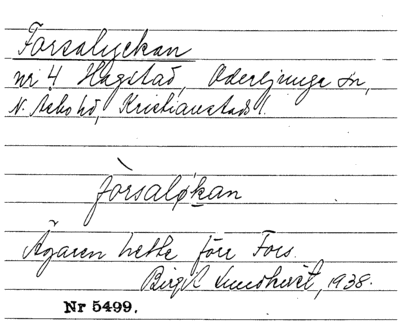 Forsalyckan
nr 4 Hagstad, Oderljunga sn,
N. Åsbo hd, Kristianstads l.
fòrsaløkan
Ägaren hette förr Fors.
Birgit Lundkvist, 1938.
Nr 5499.